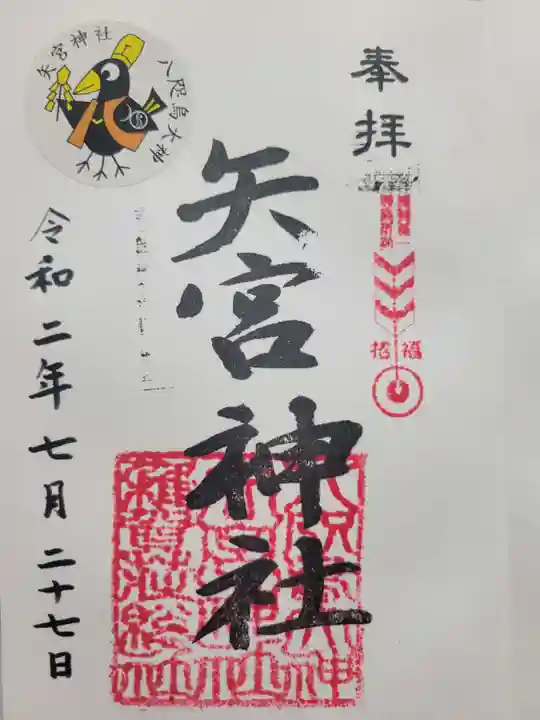 奉拝
招福
矢宮神社
矢宮神社
八咫烏大神
令和二年七月二十七日